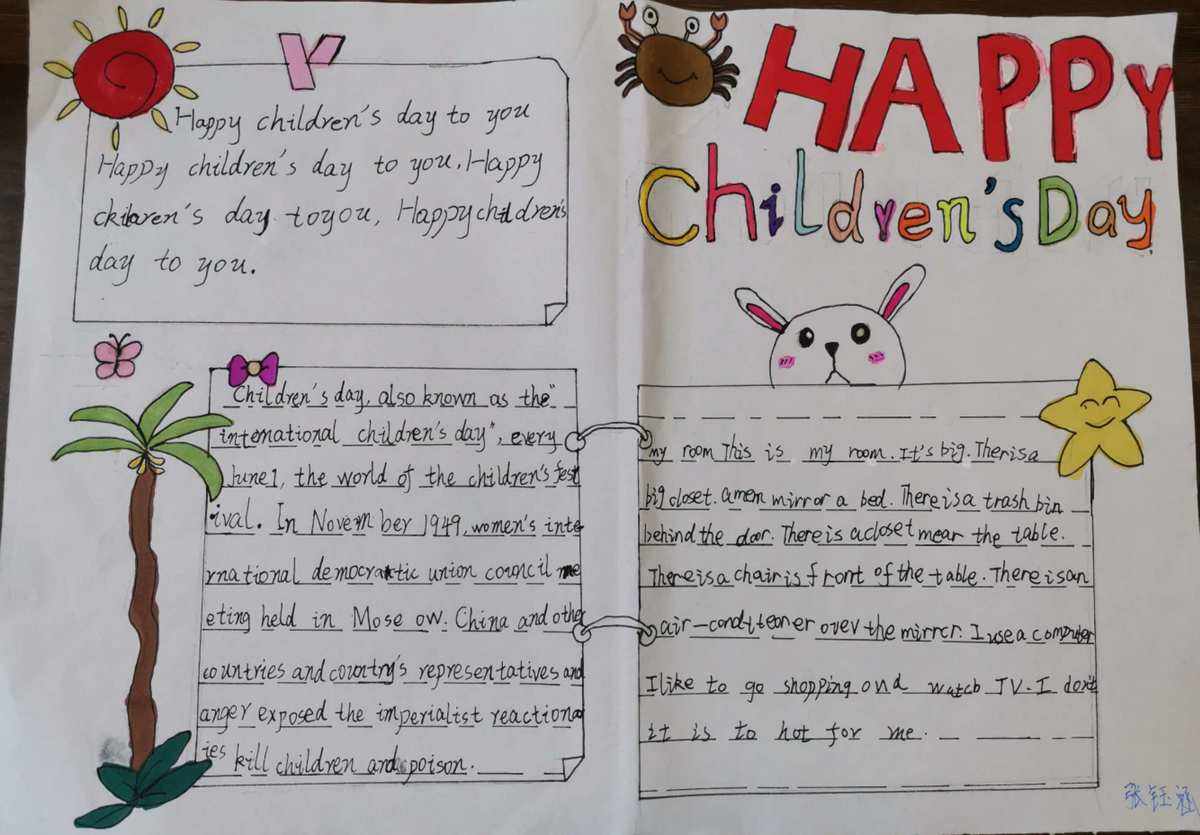 Happy children's day to you
Happy children's day to you. Happy
children's day to you, Happy children's
day to you.
HAPPY
Children's Day
Children's day, also known as the "
international children's day", every
June 1, the world of the children's fest
ival. In November 1949, women's inte
rnational democratic union council me
eting held in Mosc ow. China and other
countries and country's representatives and
anger exposed the imperialist reactiona
ies kill children and poison.
my room This is my room. It's big. Ther is a
big closet. a men mirror a bed. There is a trash bin
behind the door. There is a closet mear the table.
There is a chair is front of the table. There is an
air-conditeoner over the mirror. I use a computer
I like to go shopping and watch TV. I don't
it is to hot for me.
张钰涵